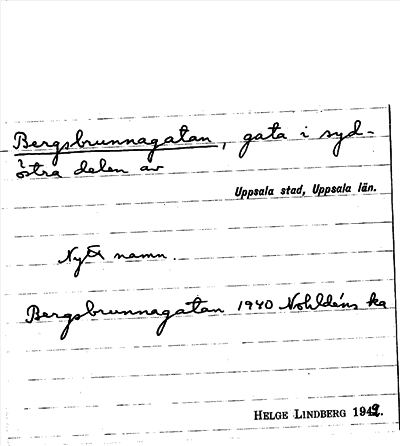 Bergsbrunnagatan, gata i syd-
östra delen av
Uppsala stad, Uppsala län.
Nytt namn.
Bergsbrunnagatan 1940 Nohldéns ka
HELGE LINDBERG 1942.